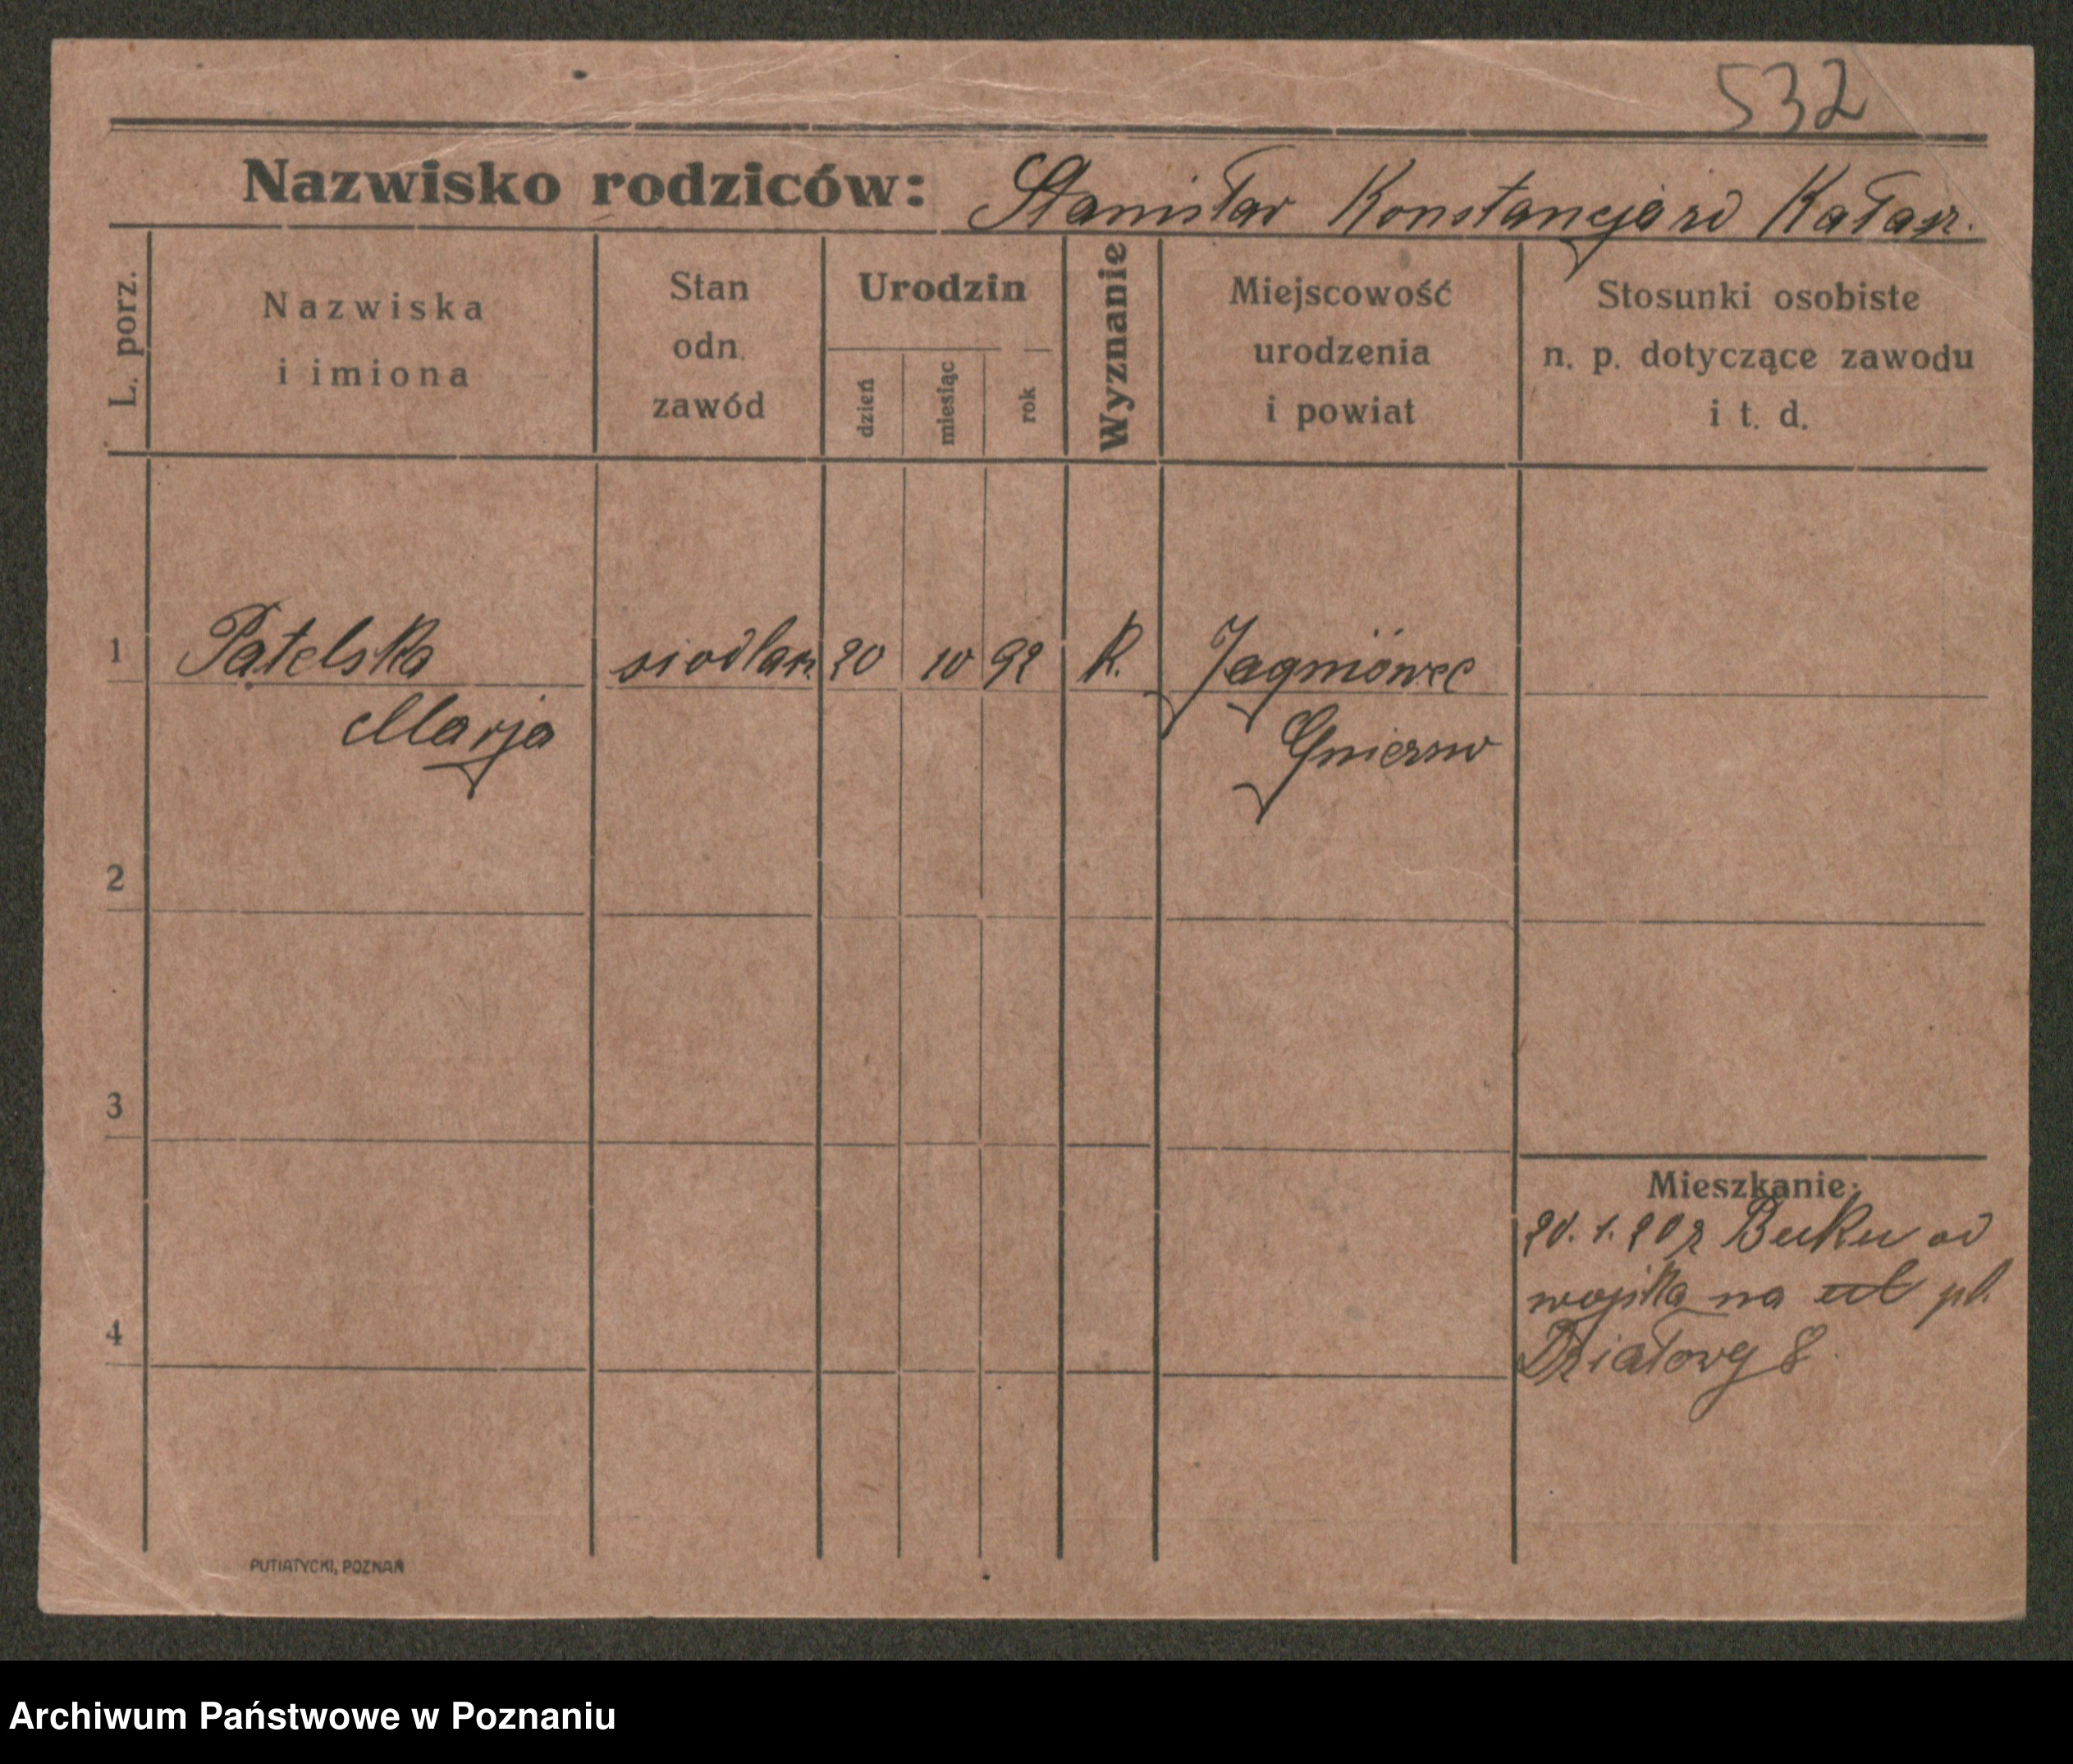 532
Nazwisko rodziców: Stanisław Konstancja zd Kałasz.
L. porz.
Nazwiska
i imiona
Stan
odn.
zawód
Urodzin
dzień
miesiąc
rok
Wyznanie
Miejscowość
urodzenia
i powiat
Stosunki osobiste
n. p. dotyczące zawodu
i t. d.
1 Patelska siodlarz. 20 10 92 k. Jagniówec
Marja Gniezno
2
3
Mieszkanie:
20. 1. 20 z Buku od
wojska na ul pl.
4
Działowy 8.
PUTIATYCKI, POZNAŃ
Archiwum Państwowe w Poznaniu